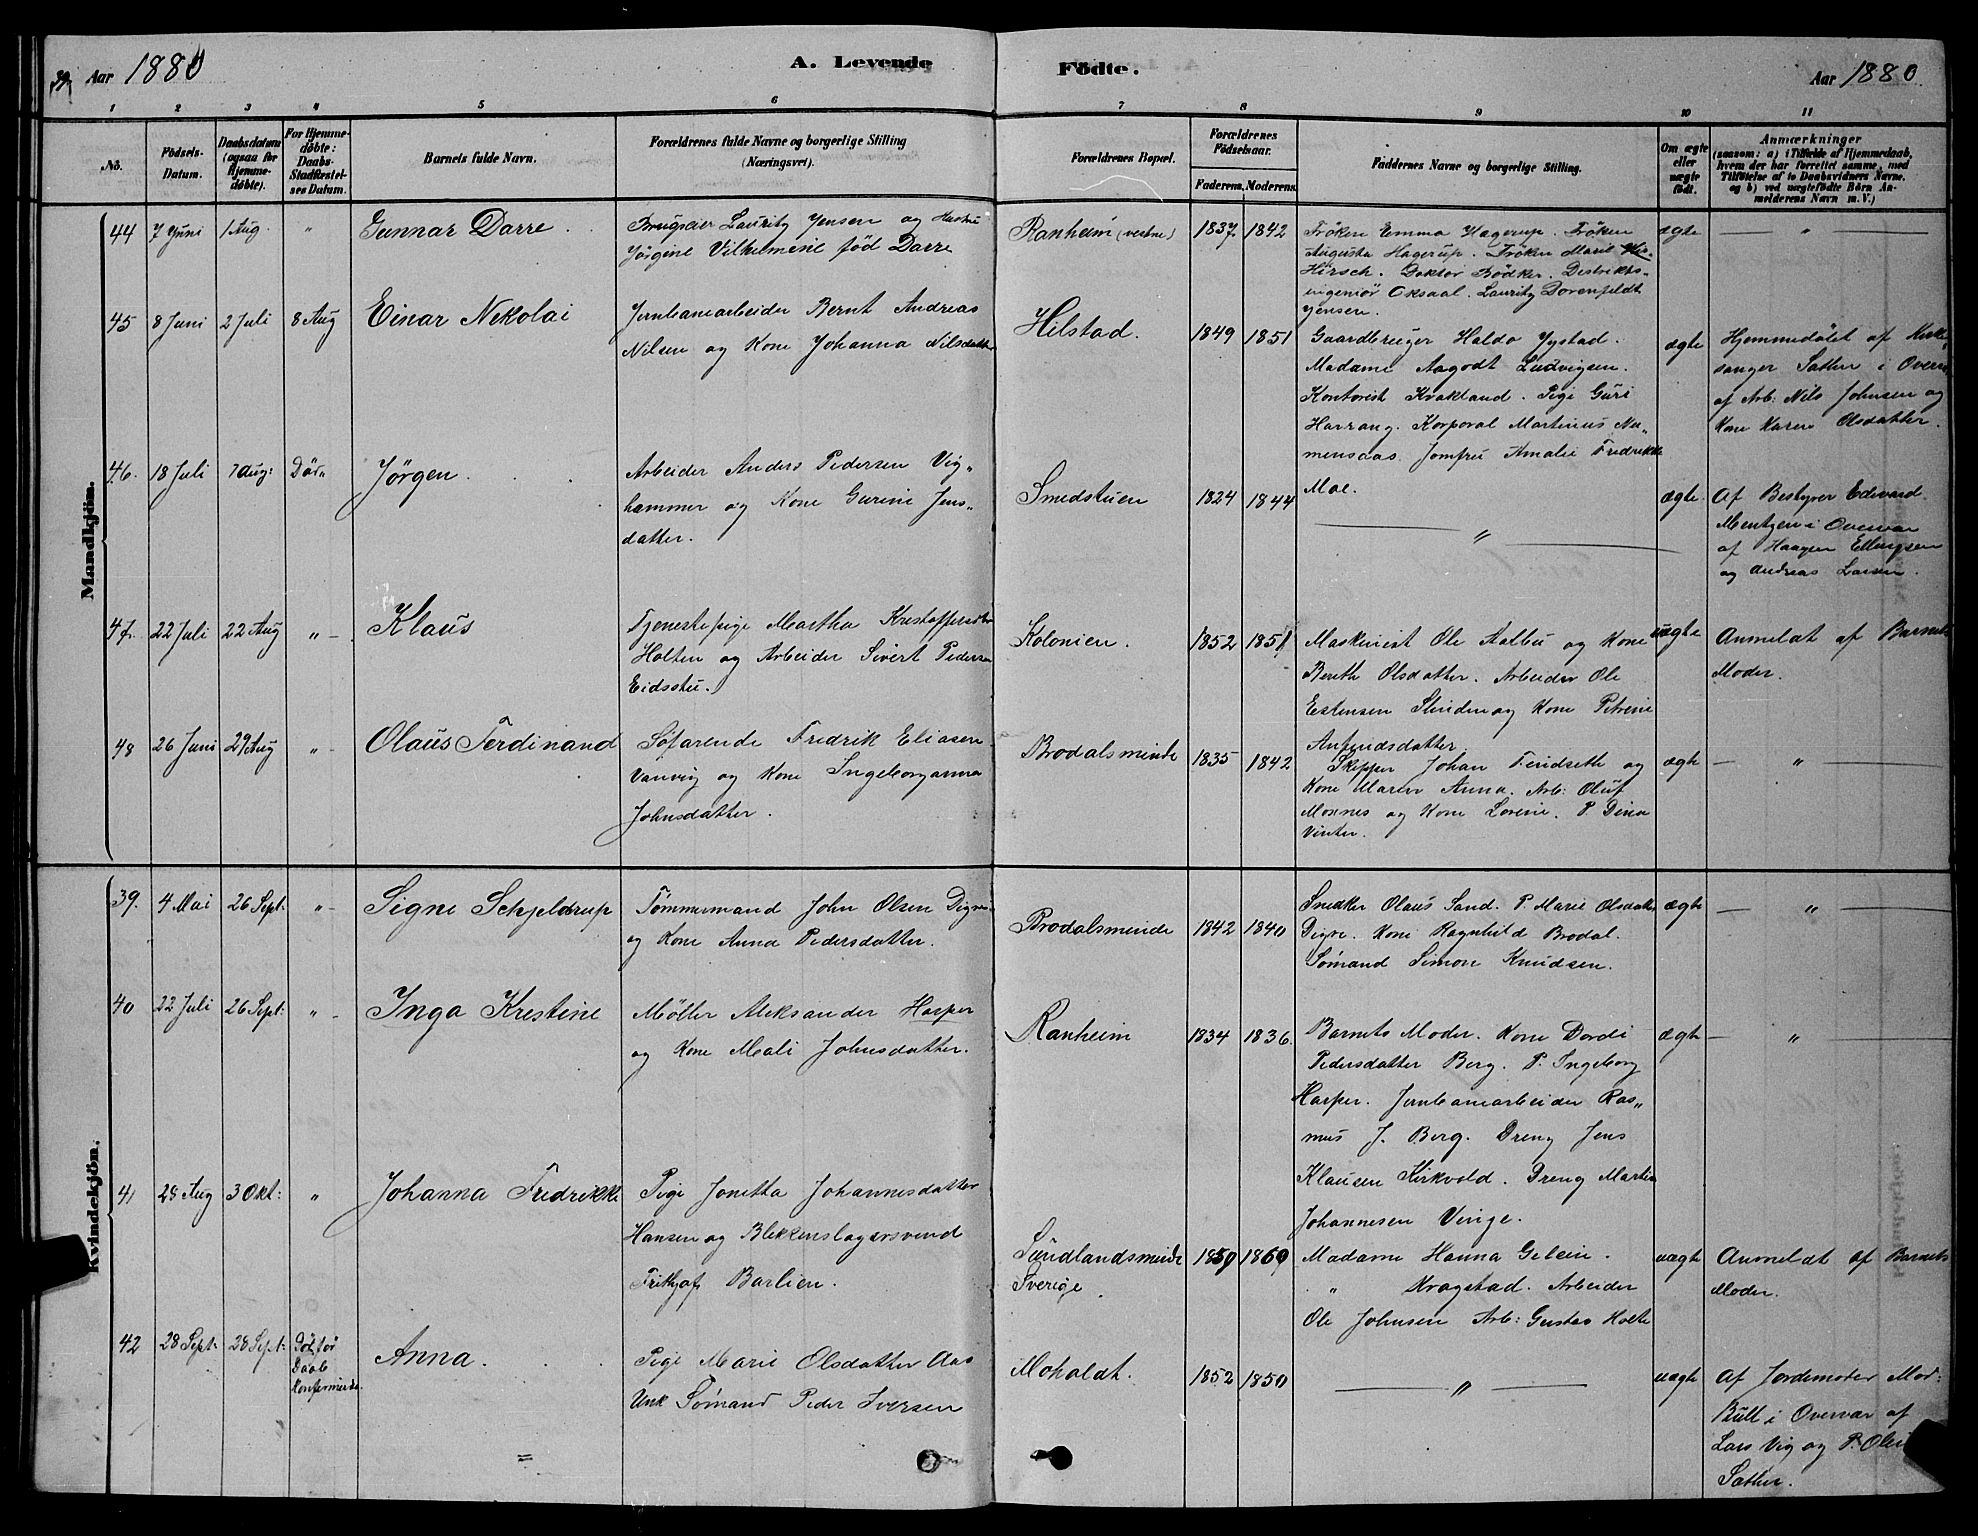 39. Aar 1880 A. Levende Födte. Aar 1880
1 2 3 4 5 6 7 8 9 10 11
Nö. Födsels-Datum. Daabsdatum (ogsaa for Hjemme-döbte). For Hjemme-döbte: Daabs-Stadfæstel-ses Datum. Barnets fulde Navn. Forældrenes fulde Navne og borgerlige Stilling (Næringsvei). Forældrenes Bopæl. Forældrenes Födselsaar. Faderens. Moderens. Faddernes Navne og borgerlige Stilling. Om ægte eller uægte födt. Anmærkninger (saasom: a) i Tilfælde af Hjemmedaab, hvem der har forrettet samme, med Tilföielse af to Daabsvidners Navne, og b) ved uægtefödte Börn Anmelderens Navn m. V.)
Mandkjön.
44 7 Juni 1 Aug. " Gunnar Darre Brugseier Lauritz Jensen og Hustru
Jörgine Vilhelmine född Darre
Ranheim (vestre) 1837 1842 Fröken Emma Hagerup. Fröken
Augusta Hagerup. Fröken Marie
Hirsch. Doktor Bödker. Distrikts-
ingeniör Oksaal. Lauritz Dorenfeldt
Jensen.
ægte "
45 8 Juni 2 Juli 8 Aug Einar Nikolai Jernbanearbeider Bernt Andreas
Nilsen og Kone Johanna Nilsdatter
Helstad. 1849 1851 Gaardbruger Haldo Ystad.
Madame Aagodt Ludvigsen.
Kontorist Kvakland. Pige Guri
Harrang. Korporal Martinus Nu-
mensaas Jomfru Amalie Fredrikke
Moe.
ægte Hjemmedöbt af Kirke-
sanger Sæther i Overv.
af Arb: Nils Johnsen og
Kone Karen Olsdatter.
46. 18 Juli 7 Aug: Död" Jörgen. Arbeider Anders Pedersen Vig-
hammer og Kone Gurine Jens-
datter.
Smedstuen 1824 1844 " ægte. Af Bestyrer Edvard
Mentzen i Overvær
af Haagen Ellingsen
og Andreas Larsen.
47. 22 Juli 22 Aug " Klaus Tjenestepige Martha Kristoffersdtr
Holten og Arbeider Sivert Pedersen
Eidsstu.
Kolonien. 1852 1851 Maskinist Ole Aalbu og Kone
Berith Olsdatter. Arbeider Ole
Estensen Slinden og Kone Petrine
Anfindsdatter.
uægte Anmeldt af Barnets
Moder.
48 26 Juni 29 Aug " Olaus Ferdinand Söfarende Fredrik Eliasen
Vanvig og Kone Ingeborganna
Johnsdatter.
Brodalsminde 1835 1842 Skipper Johan Feidseth og
Kone Maren Anna. Arb: Oluf
Mosnes og Kone Lovine. P. Dina
Vinter.
ægte "
Kvindekjön.
39. 4 Mai 26 Sept: " Signe Schjeldrup Tömmermand John Olsen Digre
og Kone Anna Pedersdatter.
Brodalsminde 1842 1840 Snedker Olaus Sand. P. Marie Olsdatter
Digre. Kone Ragnhild Brodal.
Sömand Simon Knudsen.
ægte "
40 22 Juli 26 Sept: " Inga Kristine Möller Aleksander Harper
og Kone Mali Johnsdatter.
Ranheim 1834 1836. Barnets Moder. Kone Dordi
Pedersdatter Berg. P. Ingeborg
Harper. Jernbanearbeider Ras-
mus J. Berg. Dreng Jens
Klausen Kirkvold. Dreng Martin
Johannesen Vinge.
ægte "
41 29 Aug 3 Okt: " Johanna Fredrikke Pige Jonetta Johannesdatter
Hansen og Blikkenslagersvend
Frithjof Barlien.
Sundlandsminde
Sverige 1859 1860 Madame Hanna Gelein.
" Kragstad. Arbeider
Ole Johnsen Arb: Gustav Holte
uægte Anmeldt af Barnets
Moder.
42 28 Sept: 28 Sept: Död för
Daab
Konfermerede. Anna. Pige Marie Olsdatter Aas
Unk Sömand Peder Iversen
Moholdt. 1852 1850 " uægte Af Jordemoder Mad:
Bull i Overvær af
Lars Vig og P. Oline
Sæther.